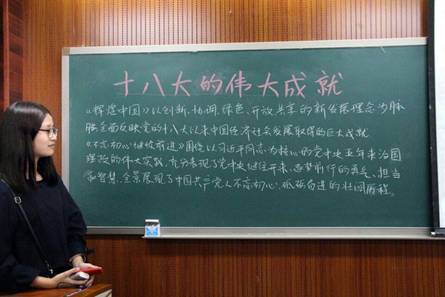 十八大的伟大成就
《辉煌中国》以创新、协调、绿色、开放共享的新发展理念为脉
络全面反映党的十八大以来中国经济社会发展取得的巨大成就
《不忘初心 继续前进》围绕以习近平同志为核心的党中央五年来治国
理政的伟大实践，充分表现了党中央继往开来、
担当
智慧，全景展现了中国共产党人不忘初心、砥砺奋进的壮阔历程。